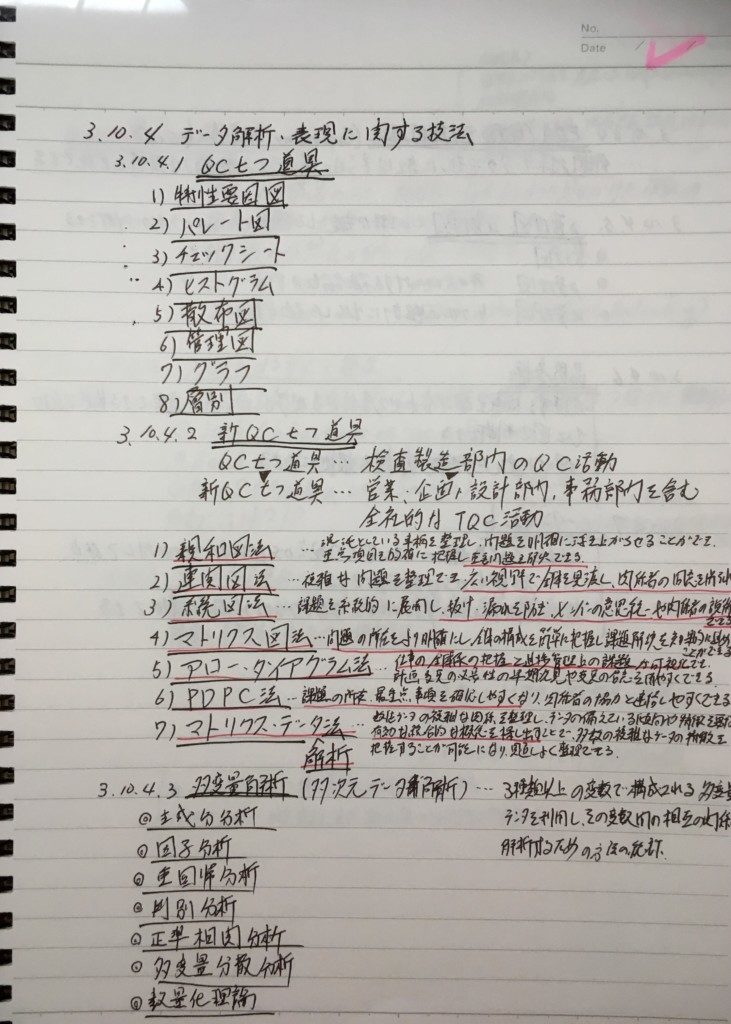 No.
Date
3.10.4 データ解析・表現に関する技法
3.10.4.1 QC七つ道具
1) 特性要因図
2) パレート図
3) チェックシート
4) ヒストグラム
5) 散布図
6) 管理図
7) グラフ
8) 層別
3.10.4.2 新QC七つ道具
QC七つ道具 … 検査製造部内のQC活動
新QC七つ道具 … 営業、企画、設計部内、事務部内を含む
全社的な TQC活動
1) 親和図法 … 混沌としている事柄を整理し、問題を明確に浮き上がらせることができ
重点項目を的確に把握し
2) 連関図法 … 複雑な問題を整理でき 広い視野で全体を見渡し、関係者の
3) 系統図法 … 課題を系統的に展開し、抜け・漏れを防ぎ、メンバーの意思統一や関係者の説得
できる
4) マトリクス図法 … 問題の所在をより明確にし、全体の構成を簡単に把握し課題解決を
ことができる
5) アロー・ダイアグラム法 … 仕事の全体像の把握と進捗管理上の課題が可視化でき
計画
6) PDPC法 … 課題の所在、最重点事項を確認しやすくなり、関係者の協力と連携しやすくできる
7) マトリクス・データ法 … 数値データの複雑な関係を整理し、データの備えている傾向や
ことで、多数の複雑なデータの
解析
把握することが可能になり、見通しよく整理できる。
3.10.4.3 多変量解析 (多次元データ解析) … 3種類以上の変数で構成される 多変量
データを利用し、その変数間の相互の関係
解析するための方法の総称.
主成分分析
因子分析
重回帰分析
判別分析
正準相関分析
多変量分散分析
数量化理論